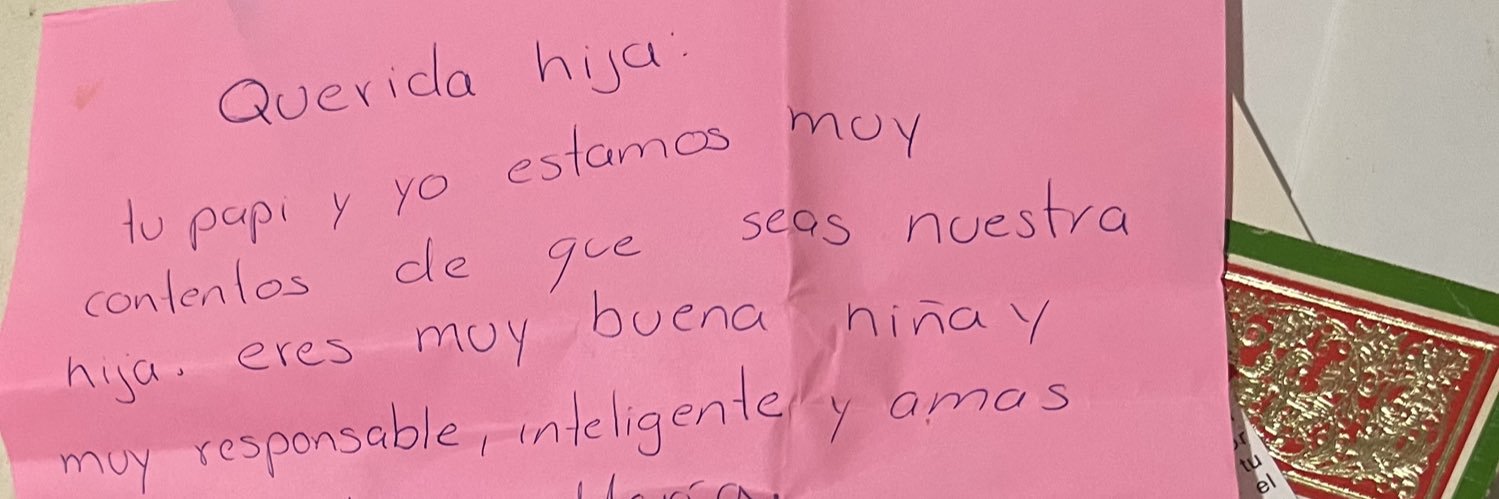 Querida hija:
tu papi y yo estamos muy
contentos de que seas nuestra
hija. eres muy buena niña y
muy responsable, inteligente y amas
tu
el